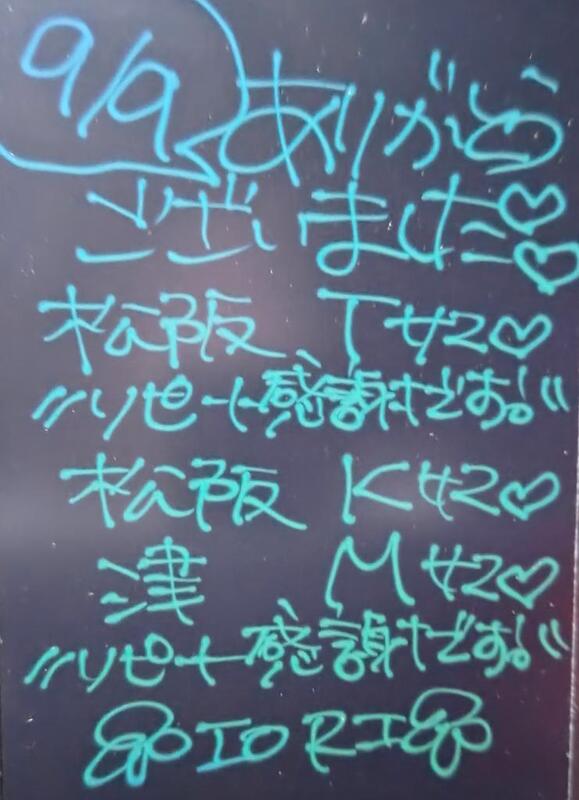 9/9 ありがとう
ございました♡♡
松阪 Tサマ♡
〃リピート感謝です!!〃
松阪 Kサマ♡
津 Mサマ♡
〃リピート感謝です!!〃
IORI